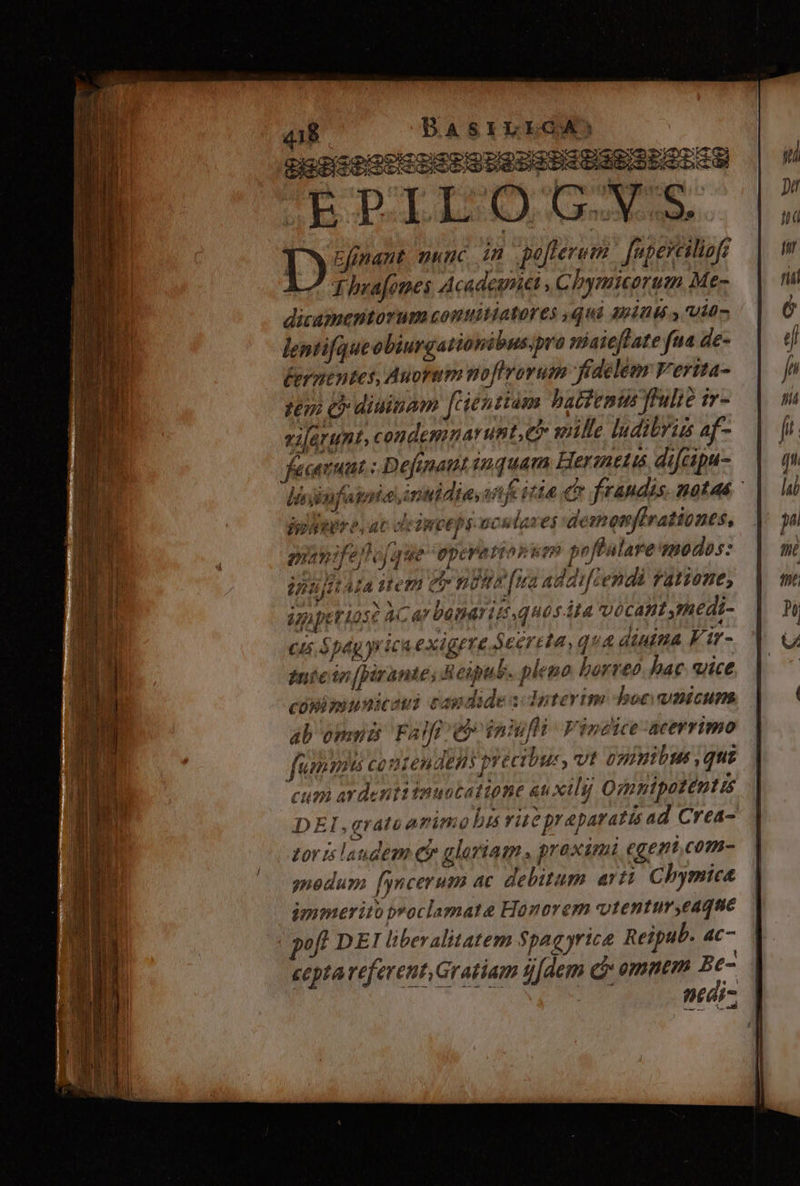 418 BASILICA
EPILOGVS.
DEſinant nunc in poſterum ſupercilioſi
Thraſones Academici, Chymicorum Me-
dicamentorum conuitiatores, qui minis, vio-
lentiſque obiurgationibus pro maieſtate ſua de-
cernentes, Auorum noſtrorum fidelem Verita-
tem & diuinam ſcientiam hactenus ſtultè ir-
riſerunt, condemnarunt, & mille ludibriis af-
fecerunt: Deſinant inquam Hermetis diſcipu-
lis inſamiæ, inuidiæ, inſcitiæ & fraudis notas
inurere, ac deinceps oculares demonſtrationes,
manifeſtoſque operationum poſtulare modos:
inuſitata item & noua ſua addiſcendi ratione,
imperiosè à Carbonariis, quos ita vocant, medi-
cis Spagyrica exigere Secreta, qua diuina Vir-
tute inſpirante, Reipub. pleno horreo hac vice
communicaui candide: Interim hoc vnicum
ab omnis Falſi & iniuſti Vindice acerrimo
ſummis contendens precibus, vt omnibus, qui
cum ardenti inuocatione auxilij Omnipotentis
DEI, grato animo his ritè præparatis ad Crea-
toris laudem & gloriam, proximi egeni com-
modum ſyncerum ac debitum arti Chymicæ
immeritò proclamatæ Honorem vtentur, eaque
poſt DEI liberalitatem Spagyricæ Reipub. ac-
cepta referent, Gratiam ijſdem & omnem Be-
nedi-